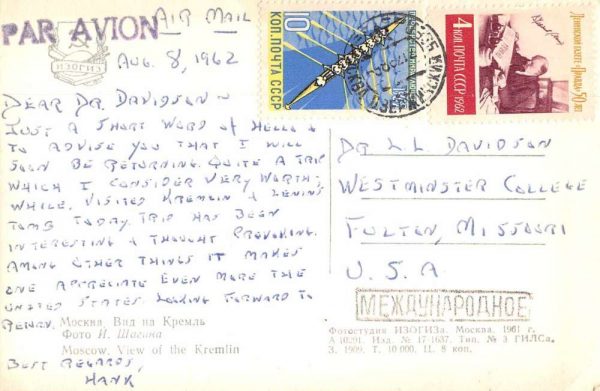 PAR AVION
AIR MAIL
ИЗОГИЗ
AUG. 8, 1962
DEAR DR. DAVIDSON ~
JUST A SHORT WORD OF HELLO &
TO ADVISE YOU THAT I WILL
SOON BE RETURNING. QUITE A TRIP
WHICH I CONSIDER VERY WORTH-
WHILE. VISITED KREMLIN & LENIN'S
TOMB TODAY. TRIP HAS BEEN
INTERESTING & THOUGHT PROVOKING.
AMONG OTHER THINGS IT MAKES
ONE APPRECIATE EVEN MORE THE
UNITED STATES. LOOKING FORWARD TO
RETURN.
BEST REGARDS,
HANK
Москва. Вид на Кремль
Фото И. Шагина
Moscow. View of the Kremlin
10
КОП. ПОЧТА СССР
4 КОП. ПОЧТА СССР 1962
Ленинской газете „Правда" 50 лет
DR. L. L. DAVIDSON
WESTMINSTER COLLEGE
FULTON, MISSOURI
U. S. A
МЕЖДУНАРОДНОЕ
Фотостудия ИЗОГИЗа. Москва. 1961 г.
А 10291. Изд. № 17-1637. Тип. № 3 ГИЛСа.
З. 1909. Т. 10 000. Ц. 8 коп.